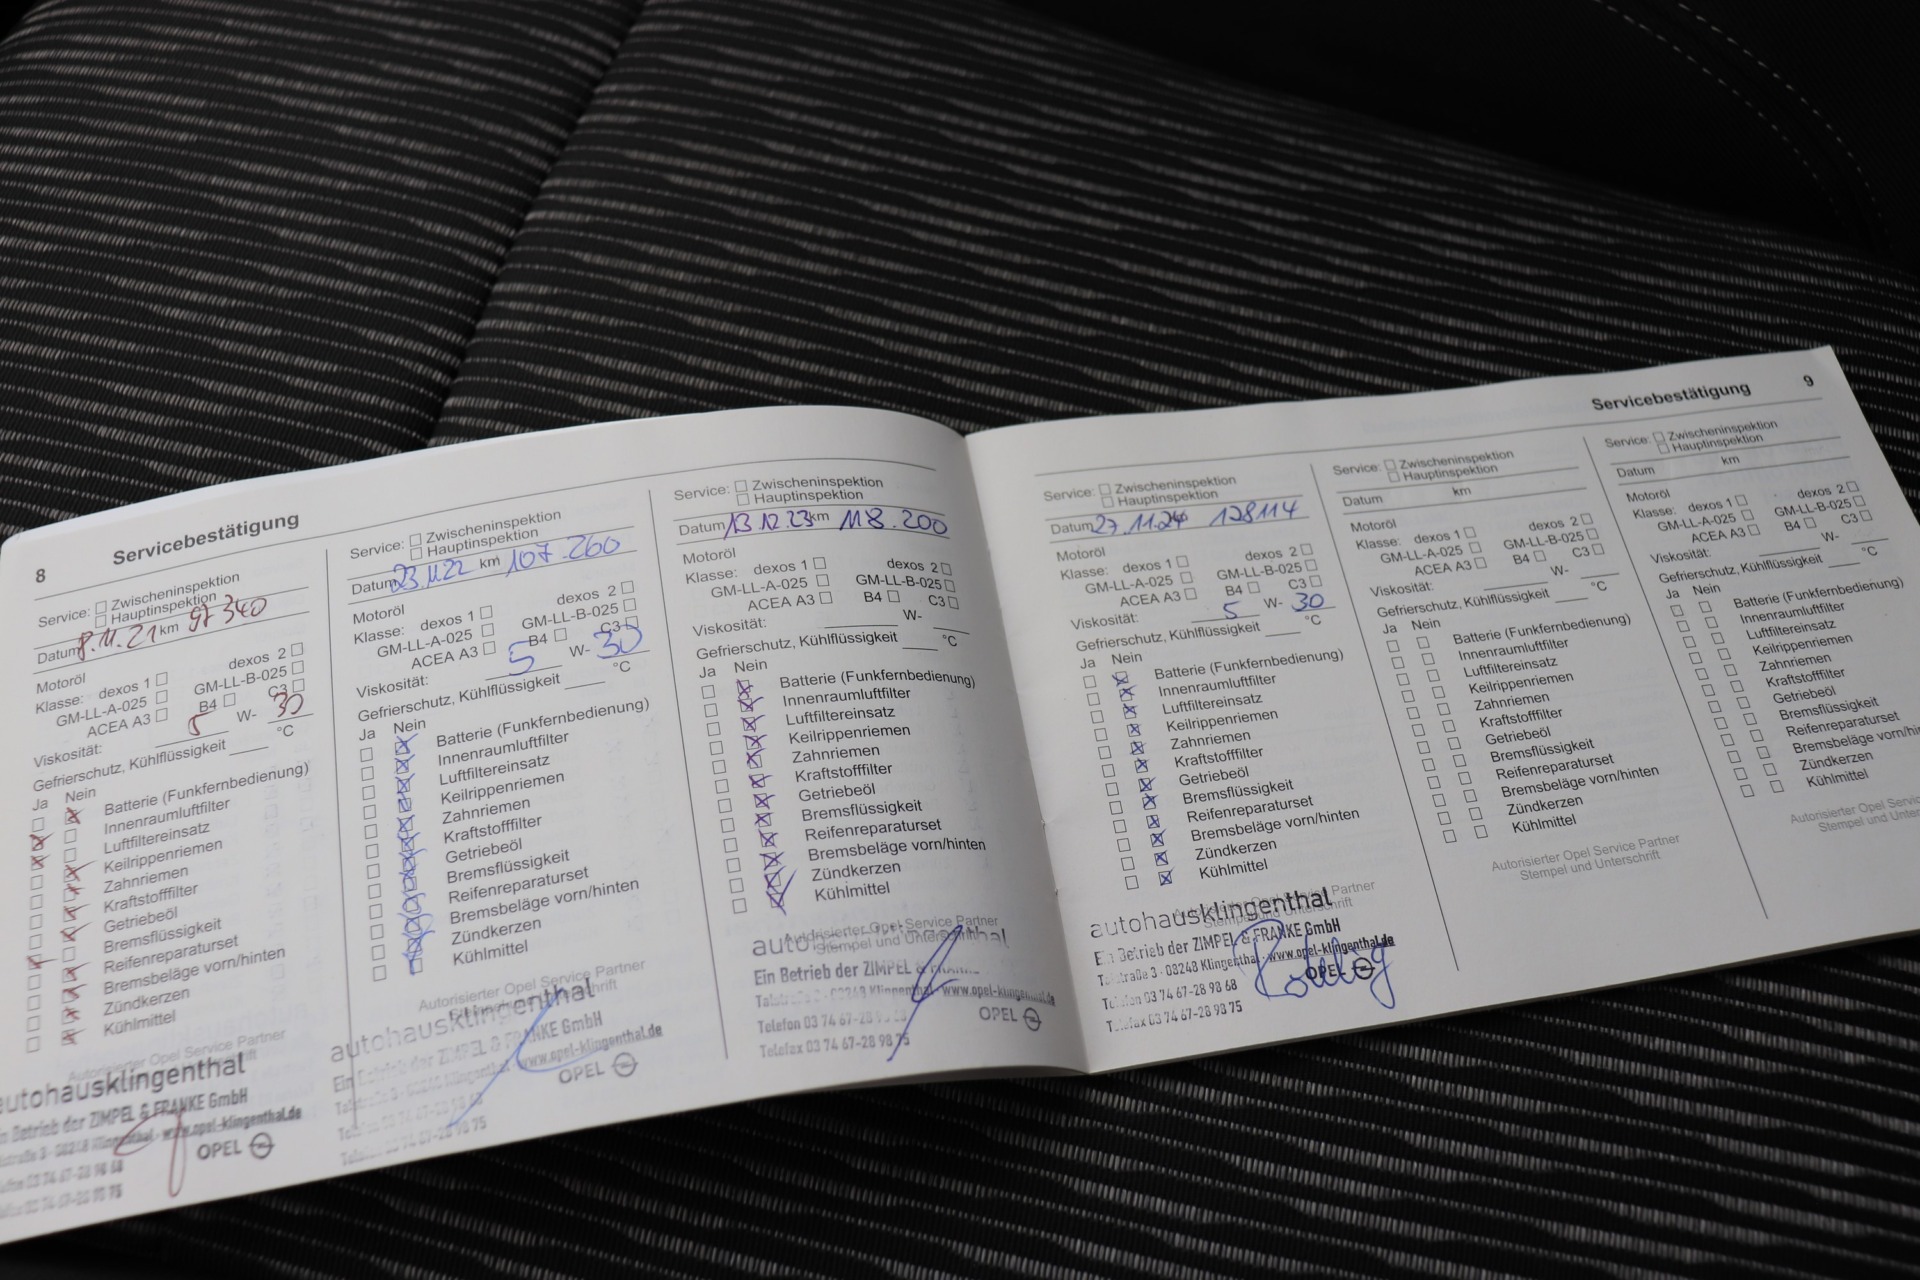 8
Servicebestätigung
Service: Zwischeninspektion
Hauptinspektion
Datum 8.11.21 km 97 340
Motoröl
Klasse: dexos 1 dexos 2
GM-LL-A-025 GM-LL-B-025
ACEA A3 B4 C3
Viskosität: 5 W- 30
Gefrierschutz, Kühlflüssigkeit °C
Ja Nein
Batterie (Funkfernbedienung)
Innenraumluftfilter
Luftfiltereinsatz
Keilrippenriemen
Zahnriemen
Kraftstofffilter
Getriebeöl
Bremsflüssigkeit
Reifenreparaturset
Bremsbeläge vorn/hinten
Zündkerzen
Kühlmittel
Autorisierter Opel Service Partner
autohausklingenthal
Ein Betrieb der ZIMPEL & FRANKE GmbH
08248 Klingenthal · www.opel-klingenthal.de
03 74 67-28 98 68
OPEL
03 74 67-28 98 75
Service: Zwischeninspektion
Hauptinspektion
Datum 23.11.22 km 107.260
Motoröl
Klasse: dexos 1 dexos 2
GM-LL-A-025 GM-LL-B-025
ACEA A3 B4 C3
Viskosität: 5 W- 30
Gefrierschutz, Kühlflüssigkeit °C
Ja Nein
Batterie (Funkfernbedienung)
Innenraumluftfilter
Luftfiltereinsatz
Keilrippenriemen
Zahnriemen
Kraftstofffilter
Getriebeöl
Bremsflüssigkeit
Reifenreparaturset
Bremsbeläge vorn/hinten
Zündkerzen
Kühlmittel
Autorisierter Opel Service Partner
autohausklingenthal
Ein Betrieb der ZIMPEL & FRANKE GmbH
08248 Klingenthal · www.opel-klingenthal.de
OPEL
03 74 67-28 98 75
Service: Zwischeninspektion
Hauptinspektion
Datum 13.12.23 km 118.200
Motoröl
Klasse: dexos 1 dexos 2
GM-LL-A-025 GM-LL-B-025
ACEA A3 B4 C3
Viskosität: W-
Gefrierschutz, Kühlflüssigkeit °C
Ja Nein
Batterie (Funkfernbedienung)
Innenraumluftfilter
Luftfiltereinsatz
Keilrippenriemen
Zahnriemen
Kraftstofffilter
Getriebeöl
Bremsflüssigkeit
Reifenreparaturset
Bremsbeläge vorn/hinten
Zündkerzen
Kühlmittel
Autorisierter Opel Service Partner
Stempel und Unterschrift
Ein Betrieb der ZIMPEL & FRANKE
08248 Klingenthal · www.opel-klingenthal.de
Telefon 03 74 67-28 98 68
OPEL
Telefax 03 74 67-28 98 75
Servicebestätigung
9
Service: Zwischeninspektion
Hauptinspektion
Datum 27.11.24 128114
Motoröl
Klasse: dexos 1 dexos 2
GM-LL-A-025 GM-LL-B-025
ACEA A3 B4 C3
Viskosität: 5 W- 30
Gefrierschutz, Kühlflüssigkeit °C
Ja Nein
Batterie (Funkfernbedienung)
Innenraumluftfilter
Luftfiltereinsatz
Keilrippenriemen
Zahnriemen
Kraftstofffilter
Getriebeöl
Bremsflüssigkeit
Reifenreparaturset
Bremsbeläge vorn/hinten
Zündkerzen
Kühlmittel
Autorisierter Opel Service Partner
Stempel und Unterschrift
autohausklingenthal
Ein Betrieb der ZIMPEL & FRANKE GmbH
Talstraße 3 · 08248 Klingenthal · www.opel-klingenthal.de
Telefon 03 74 67-28 98 68
OPEL
Telefax 03 74 67-28 98 75
Service: Zwischeninspektion
Hauptinspektion
Datum km
Motoröl
Klasse: dexos 1 dexos 2
GM-LL-A-025 GM-LL-B-025
ACEA A3 B4 C3
Viskosität: W-
Gefrierschutz, Kühlflüssigkeit °C
Ja Nein
Batterie (Funkfernbedienung)
Innenraumluftfilter
Luftfiltereinsatz
Keilrippenriemen
Zahnriemen
Kraftstofffilter
Getriebeöl
Bremsflüssigkeit
Reifenreparaturset
Bremsbeläge vorn/hinten
Zündkerzen
Kühlmittel
Autorisierter Opel Service Partner
Stempel und Unterschrift
Service: Zwischeninspektion
Hauptinspektion
Datum km
Motoröl
Klasse: dexos 1 dexos 2
GM-LL-A-025 GM-LL-B-025
ACEA A3 B4 C3
Viskosität: W-
Gefrierschutz, Kühlflüssigkeit °C
Ja Nein
Batterie (Funkfernbedienung)
Innenraumluftfilter
Luftfiltereinsatz
Keilrippenriemen
Zahnriemen
Kraftstofffilter
Getriebeöl
Bremsflüssigkeit
Reifenreparaturset
Bremsbeläge vorn/hin
Zündkerzen
Kühlmittel
Autorisierter Opel Servic
Stempel und Unters